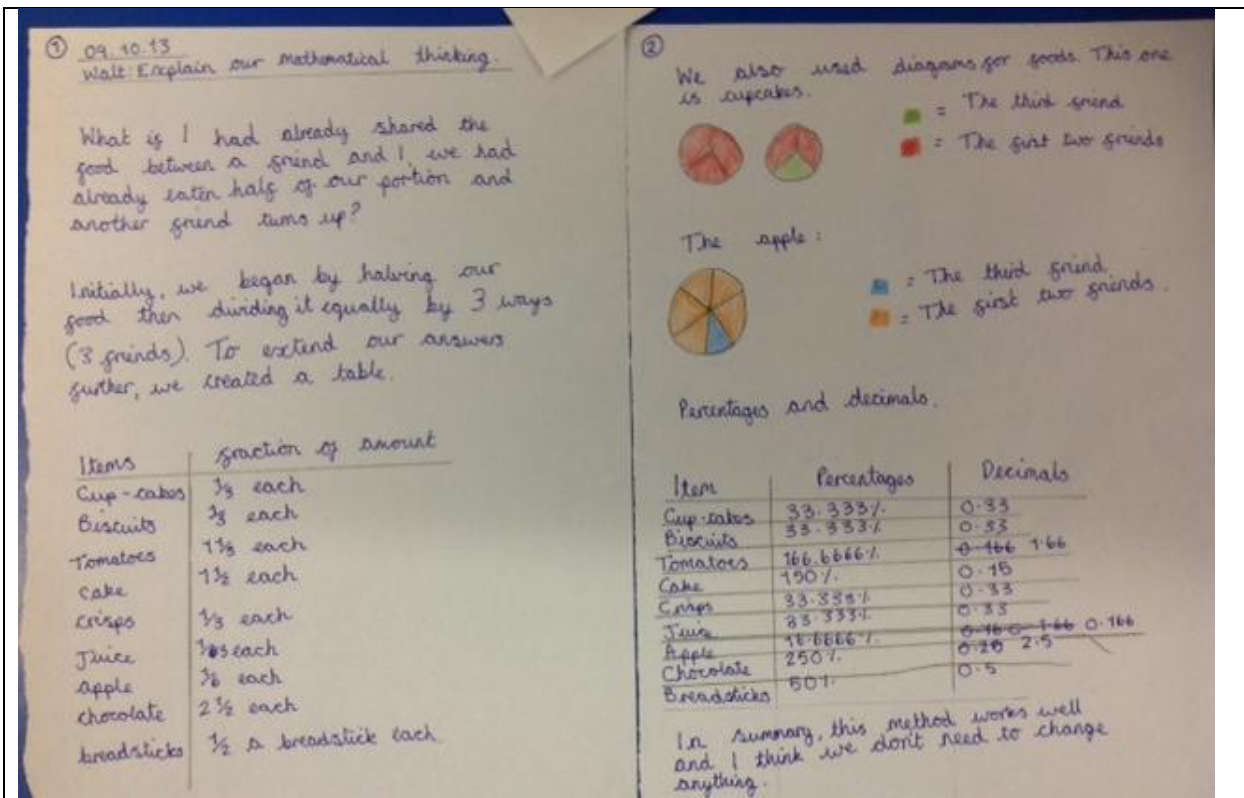 ① 09.10.13
Walt: Explain our mathematical thinking.
What if I had already shared the
food between a friend and I, we had
already eaten half of our portion and
another friend turns up?
Initially, we began by halving our
food then dividing it equally by 3 ways
(3 friends). To extend our answers
further, we created a table.
Items fraction of amount
Cup-cakes ⅓ each
Biscuits ⅓ each
Tomatoes 1⅔ each
Cake 1½ each
crisps ⅓ each
Juice each
apple ⅙ each
chocolate 2½ each
breadsticks ½ a breadstick each.
②
We also used diagrams for foods. This one
is cupcakes.
= The third friend
= The first two friends
The apple:
= The third friend.
= The first two friends.
Percentages and decimals.
Item Percentages Decimals
Cup-cakes 33.333% 0.33
Biscuits 33.333% 0.33
Tomatoes 166.6666% 0.166 1.66
Cake 150% 0.15
Crisps 33.333% 0.33
Juice 33.333% 0.33
Apple 16.6666% 1.66 0.166
Chocolate 250% 0.25 2.5
Breadsticks 50% 0.5
In summary, this method works well
and I think we don't need to change
anything.